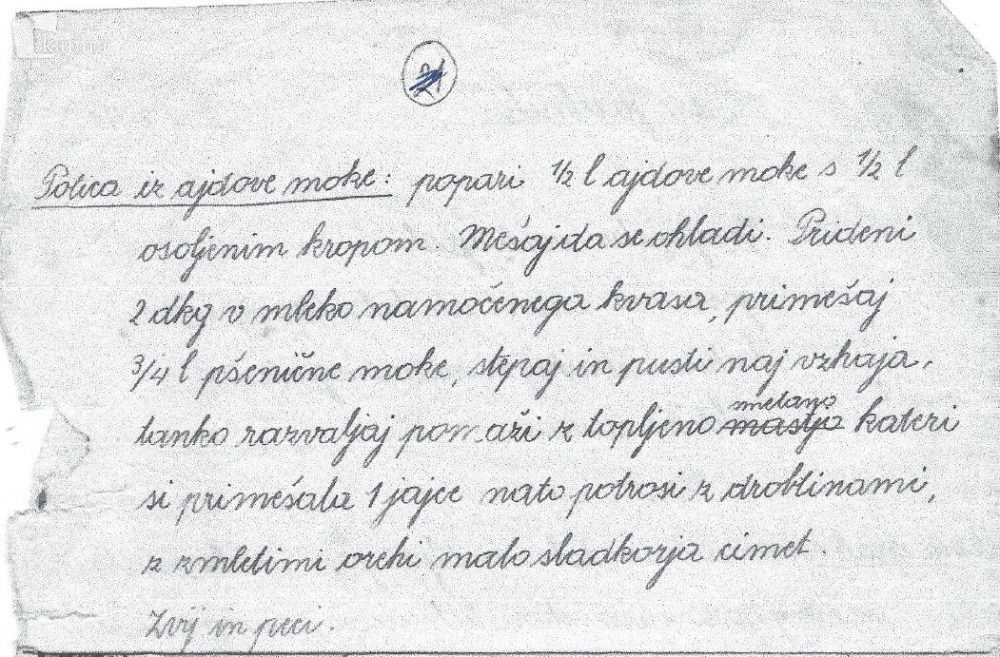 21
Potica iz ajdove moke: popari 1/2 l ajdove moke s 1/2 l
osoljenim kropom. Mešaj da se ohladi. Prideni
2 dkg v mleko namočenega kvasa, primešaj
3/4 l pšenične moke, stepaj in pusti naj vzhaja.
smetano
tanko razvaljaj pomaži z topljeno mastjo kateri
si primešala 1 jajce nato potrosi z drobtinami,
z zmletimi orehi malo sladkorja cimet.
Zvij in peci.